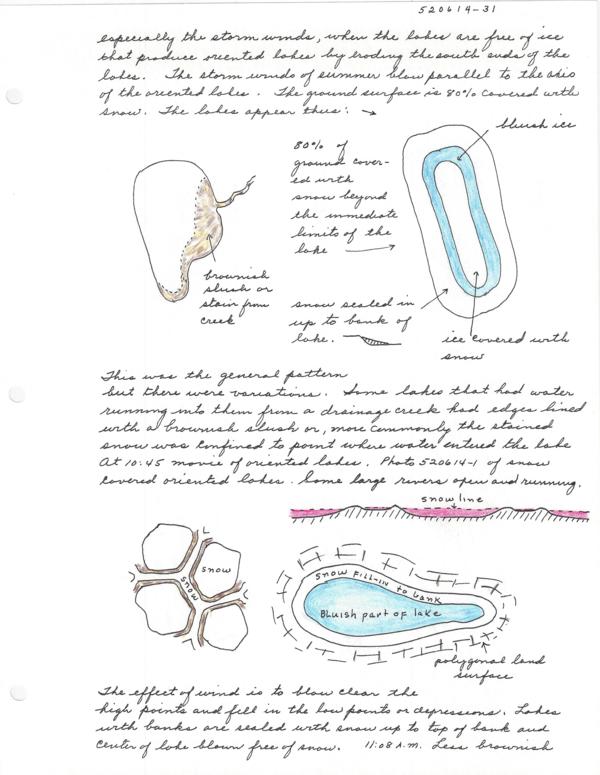 520614-31
especially the storm winds, when the lakes are free of ice
that produce oriented lakes by eroding the south ends of the
lakes. The storm winds of summer blow parallel to the axis
of the oriented lakes. The ground surface is 80% covered with
snow. The lakes appear thus: →
bluish ice
80% of
ground cover-
ed with
snow beyond
the immediate
limits of the
lake
brownish
slush or
stain from
creek
snow sealed in
up to bank of
lake.
ice covered with
snow
This was the general pattern
but there were variations. Some lakes that had water
running into them from a drainage creek had edges lined
with a brownish slush or, more commonly the stained
snow was confined to point where water entered the lake
At 10:45 movie of oriented lakes. Photo 520614-1 of snow
covered oriented lakes. Some large rivers open and running.
snow line
snow
snow
snow fill-in to bank
Bluish part of lake
polygonal land
surface
The effect of wind is to blow clear the
high points and fill in the low points or depressions. Lakes
with banks are sealed with snow up to top of bank and
center of lake blown free of snow. 11:08 A.M. Less brownish